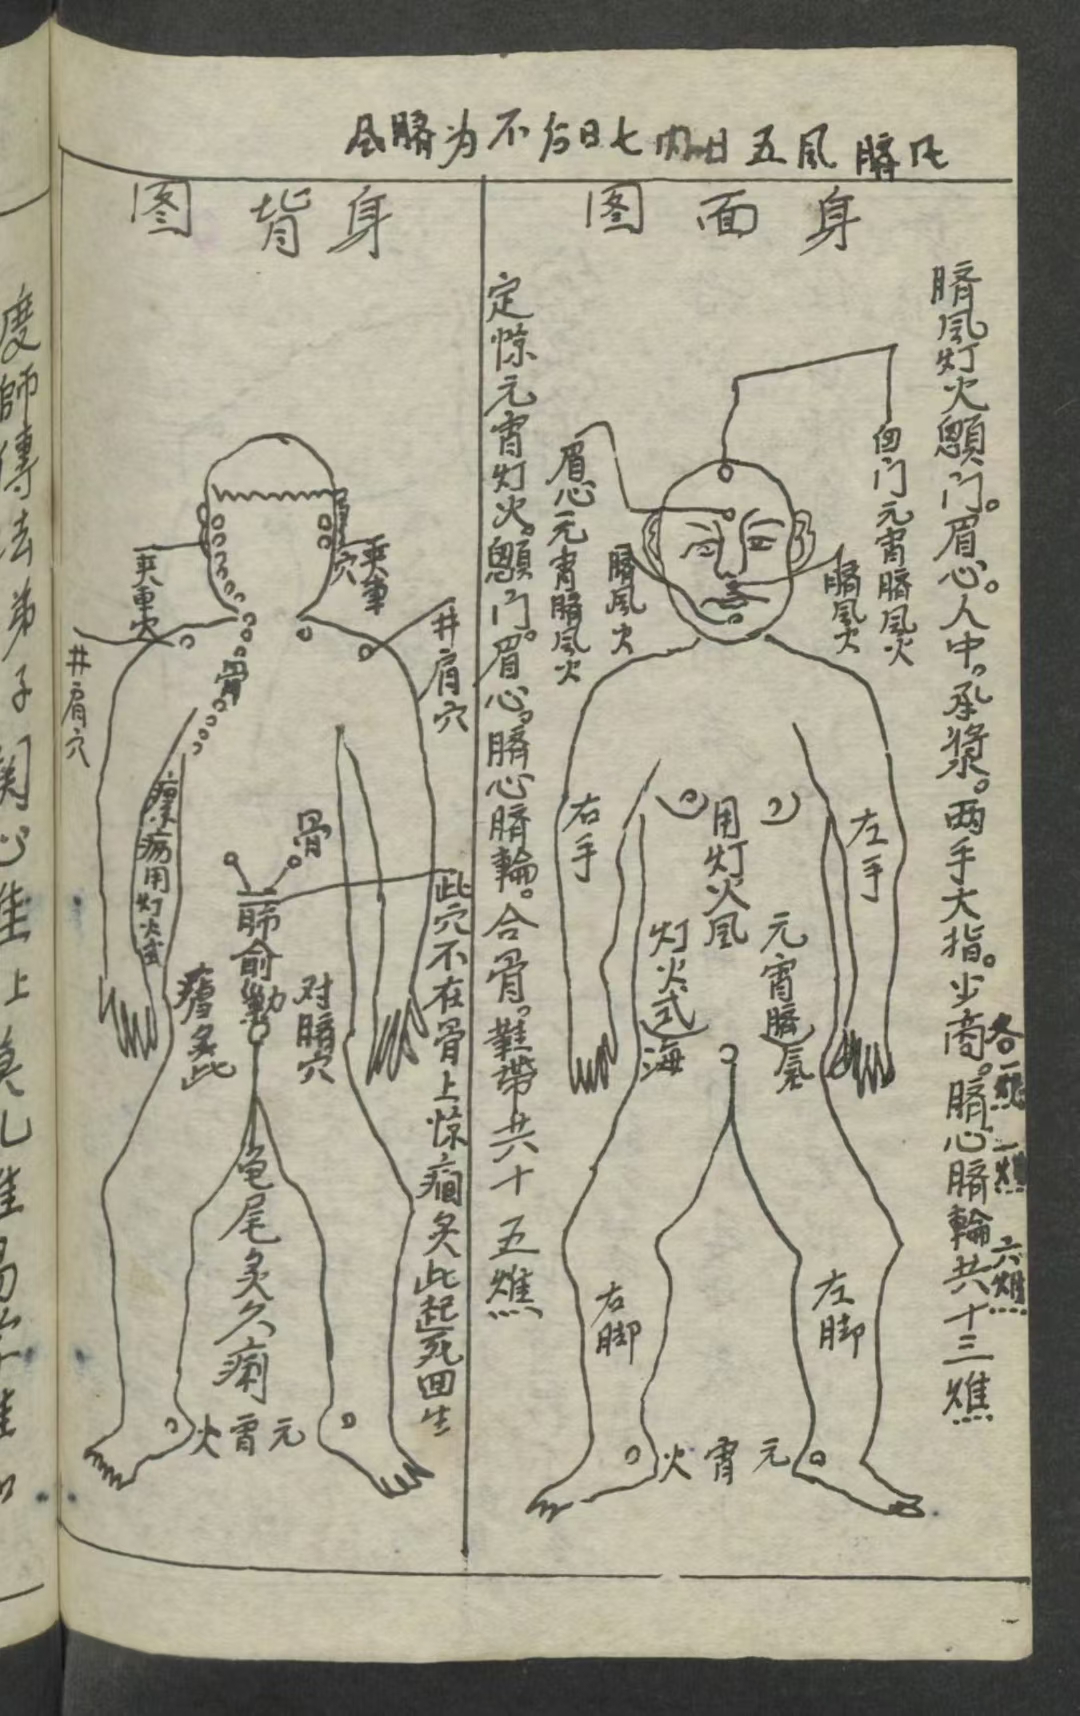 凡臍風五日内七日外不为臍風
身面图
臍風灯火顖门。眉心。人中。承漿。两手大指。少商。臍心臍輪共十三燋
各一燋
一燋
六燋
囟门元宵臍風火
臍風火
眉心元宵臍風火
臍風火
左手
右手
用灯火風
元宵臍氣
灯火式海
左脚
右脚
元宵火
定惊元宵灯火。顖门。眉心。臍心臍輪。合骨。鞋帶共十五燋
身背图
夾車穴
夾車穴
井肩穴
井肩穴
骨
瘰疬用灯火式
骨
此穴不在骨上惊痫炙此起死回生
肺俞
对臍穴
炙此
龟尾炙久痢
元宵火
度師傳法弟子